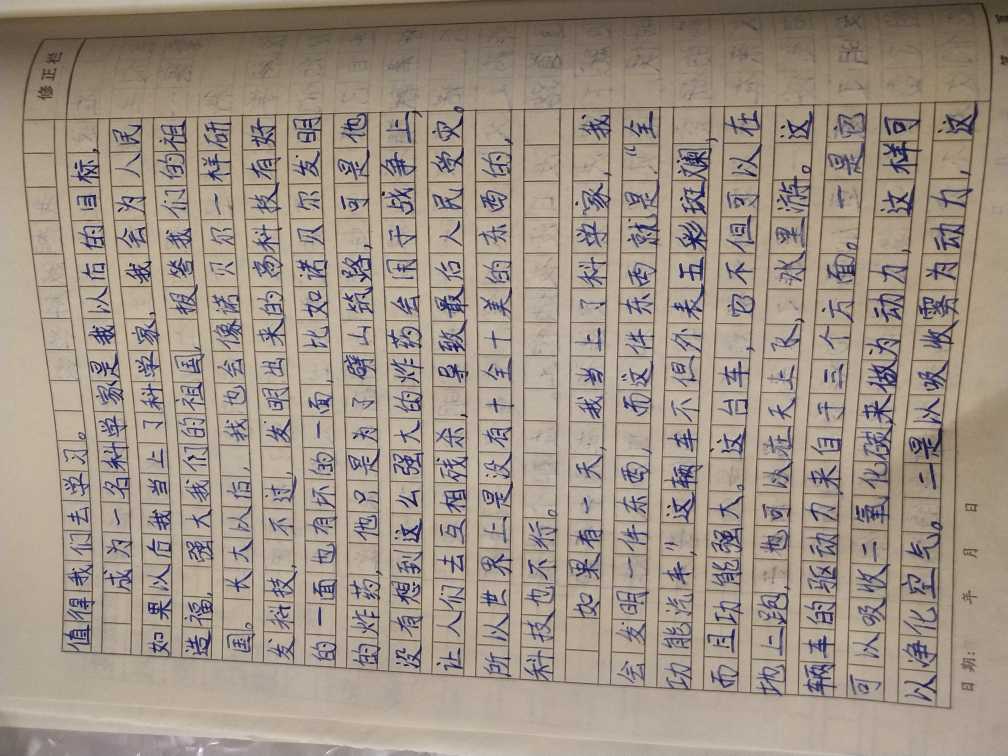 修正栏
值得我们去学习。
成为一名科学家是我以后的目标，
如果以后我当上了科学家，我会为人民
造福，强大我们的祖国，报答我们的祖
国。长大以后，我也会像诺贝尔一样研
发科技，不过，发明出来的高科技有好
的一面也有坏的一面，比如诺贝尔发明
的炸药，他只是为了劈山筑路，可是他
没有想到这么强大的炸药会用于战争上，
让人们去互相残杀，导致最后人民受灾。
所以世界上是没有十全十美的东西的，
科技也不行。
如果有一天，我当上了科学家，我
会发明一件东西，而这件东西就是“全
功能汽车”，这辆车不但外表五彩斑斓，
而且功能强大。这台车，它不但可以在
地上跑，也可以在天上飞，水里游。这
辆车的驱动力来自于三个方面。一是它
可以吸收二氧化碳来做为动力，这样可
以净化空气。二是以吸收雾为动力，这
日期： 年 月 日
第 页